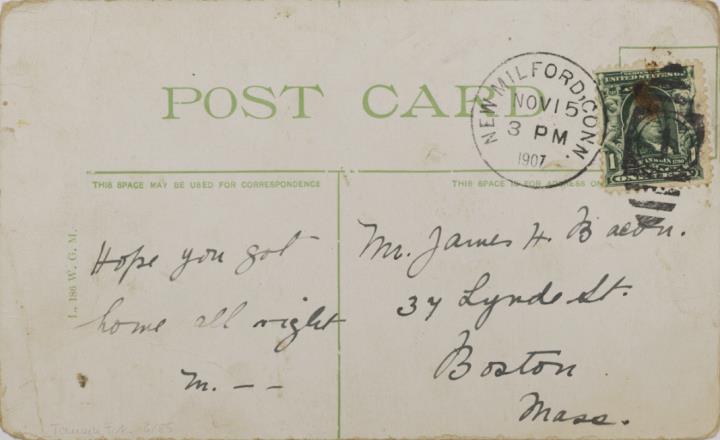 POST CARD
NEW MILFORD, CONN.
NOV 15
3 PM
1907
THIS SPACE MAY BE USED FOR CORRESPONDENCE
THIS SPACE IS FOR ADDRESS ON
L. 186 W. G. M.
Hope you got
home all right
M. – –
Mr. James H. Bacon.
37 Lynde St.
Boston
Mass.